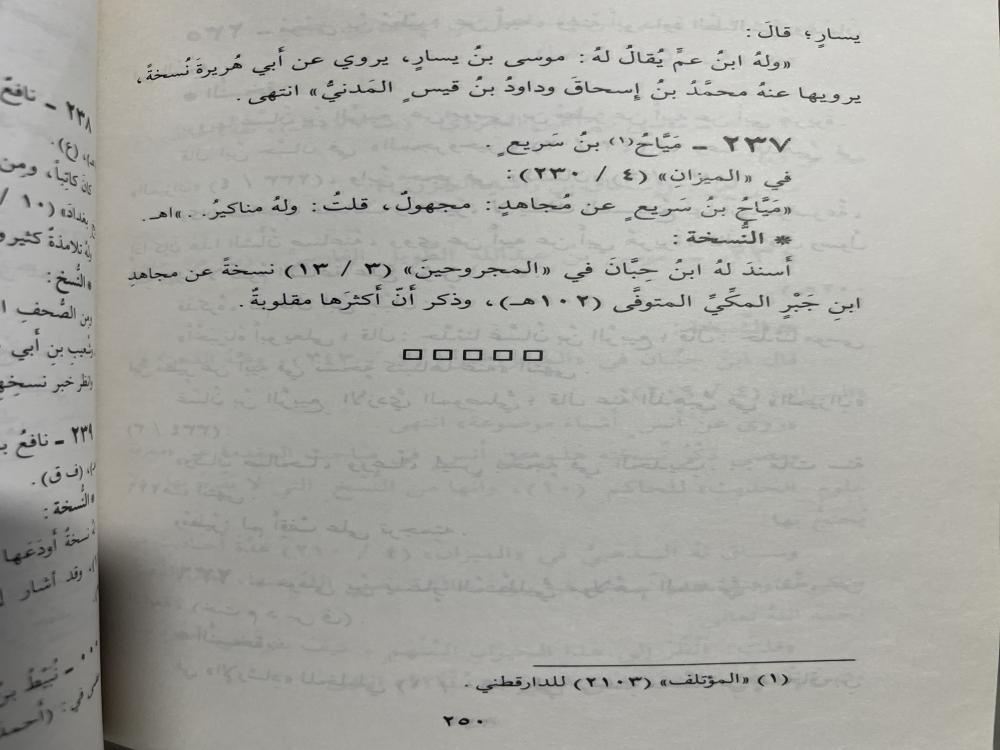 يسارٍ؛ قالَ:
«ولهُ ابنُ عمٍّ يُقالُ لهُ: موسى بنُ يسارٍ، يروي عن أبي هُريرةَ نُسخةً،
يرويها عنهُ محمَّدُ بنُ إسحاقَ وداودُ بنُ قيسٍ المَدنيُّ» انتهى.
٢٣٧ ـ مَيَّاحُ(١) بنُ سَريعٍ.
في «الميزانِ» (٤ / ٢٣٠):
«مَيَّاحُ بنُ سَريعٍ عن مُجاهدٍ: مجهولٌ، قلتُ: ولهُ مناكيرُ..»اهـ.
* النُّسخة:
أَسندَ لهُ ابنُ حِبَّانَ في «المجروحينَ» (٣ / ١٣) نسخةً عن مجاهدِ
ابنِ جَبْرٍ المكِّيِّ المتوفَّى (١٠٢هـ)، وذكر أنّ أكثرَها مقلوبةٌ.
(١) «المؤتلف» (٢١٠٣) للدارقطني.
٢٥٠
٢٣٨ ـ نافعُ
(ع).
كانَ كاتِباً، ومِن
بغدادَ» (١٠ /
ولهُ تلامذةٌ كثير
*النُّسخ:
ومِن الصُّحفِ
بنِ أَبي
وانظر خبر نسخ
٢٣٩ ـ نافعُ
(ف ق).
*النُّسخة:
نسخةٌ أَودَعَها
وقد أشار
ـ نُبَيْطُ بنُ
في: (أحمد